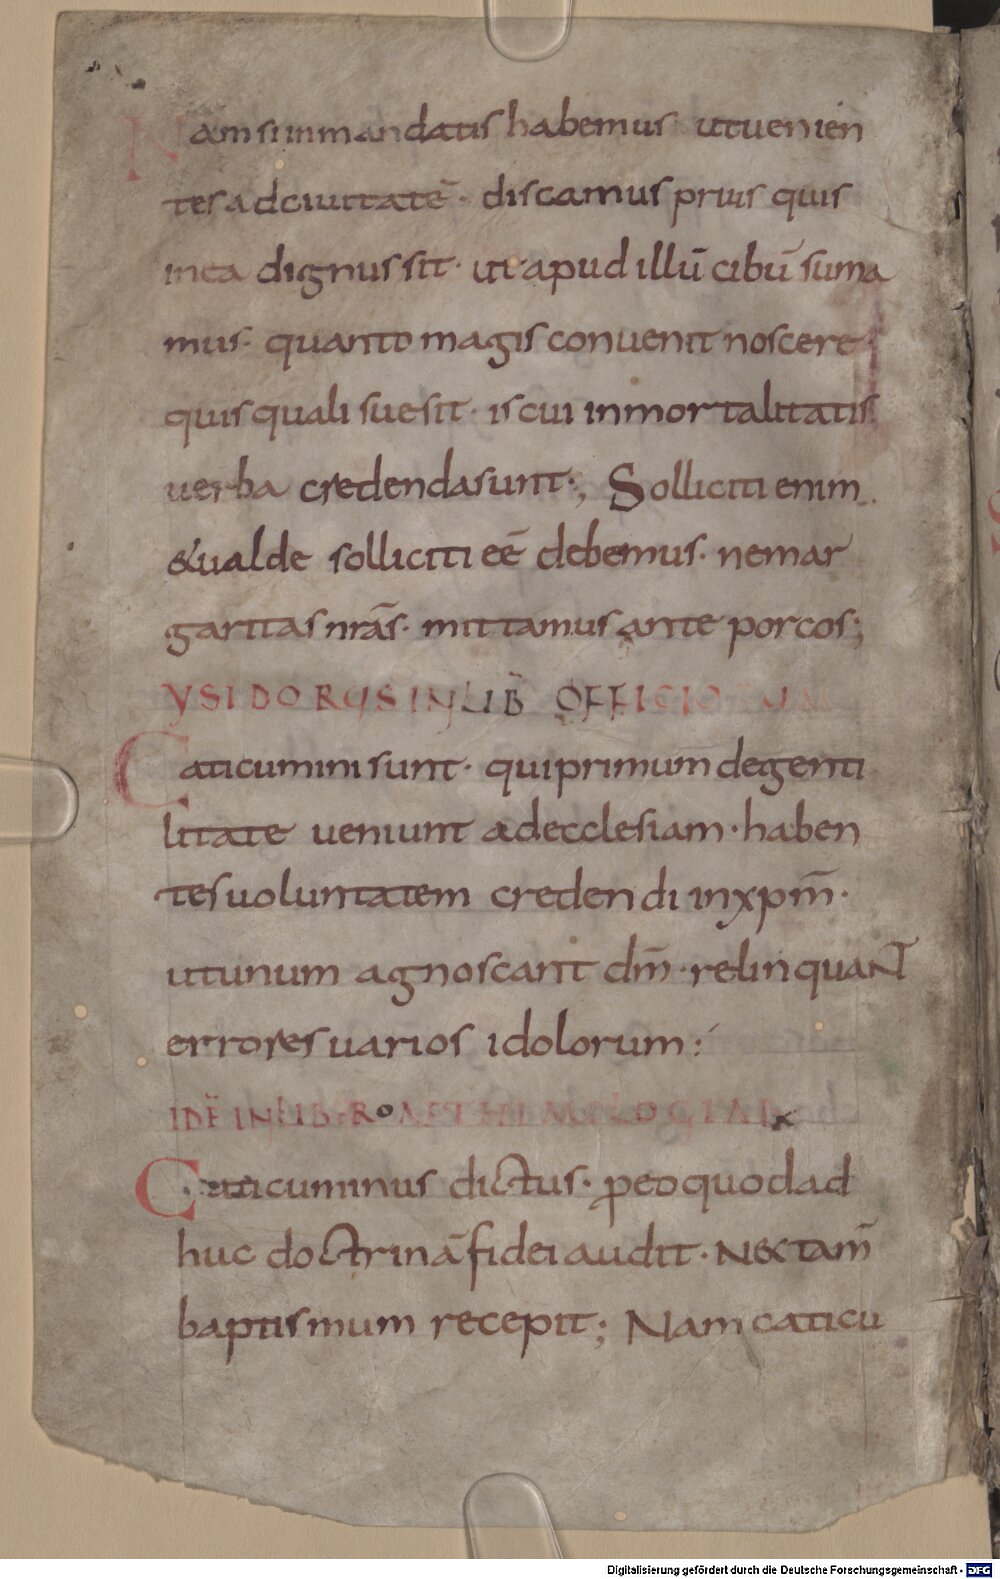 Nam si in mandatis habemus ut uenien
tes ad ciuitatē· discamus prius quis
in ea dignus sit· ut apud illū cibū suma
mus· quanto magis conuenit noscere·
quis qualisue sit· is cui inmortalitatis
uerba credenda sunt·; Solliciti enim
& ualde solliciti eē debemus· ne mar
garitas nr̄as· mittamus ante porcos;
YSIDORUS IN LIB̄ OFFICIORUM
Caticumini sunt· qui primum de genti
litate ueniunt ad ecclesiam· haben
tes uoluntatem credendi in xpm̄·
ut unum agnoscant dm̄· relinquant
errores uarios idolorum:
IDĒ IN LIBRO AETHIMOLOGIAR
Caticuminus dictus· p eo quod ad
huc doctrinā fidei audit· Nec tam̄
baptismum recepit; Nam caticu
Digitalisierung gefördert durch die Deutsche Forschungsgemeinschaft - DFG